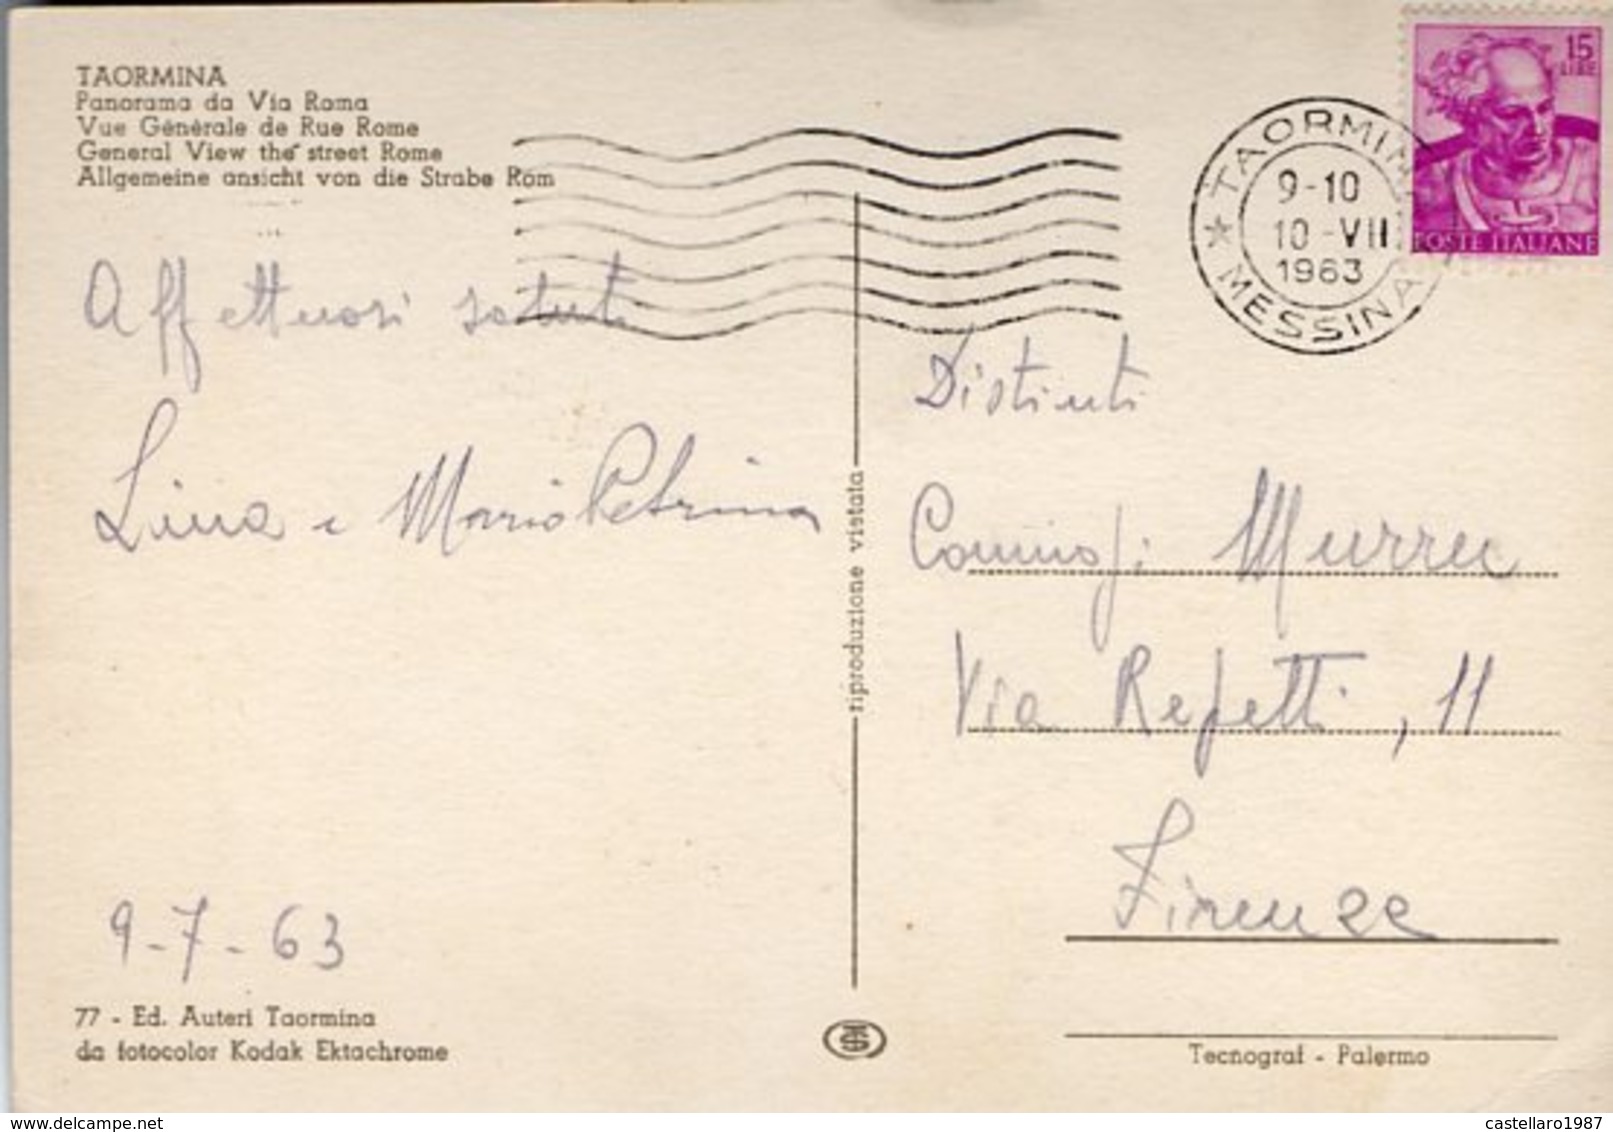 TAORMINA
Panorama da Via Roma
Vue Générale de Rue Rome
General View the street Rome
Allgemeine ansicht von die Strabe Rom
15
LIRE
POSTE ITALIANE
TAORMINA
9-10
10-VII
1963
MESSINA
Affettuosi saluti
Lina e Mario Petrina
9-7-63
riproduzione vietata
Distinti
Coniugi Murreu
Via Repetti, 11
Firenze
77 - Ed. Auteri Taormina
da fotocolor Kodak Ektachrome
Tecnograf - Palermo
www.delcampe.net
castellaro1987